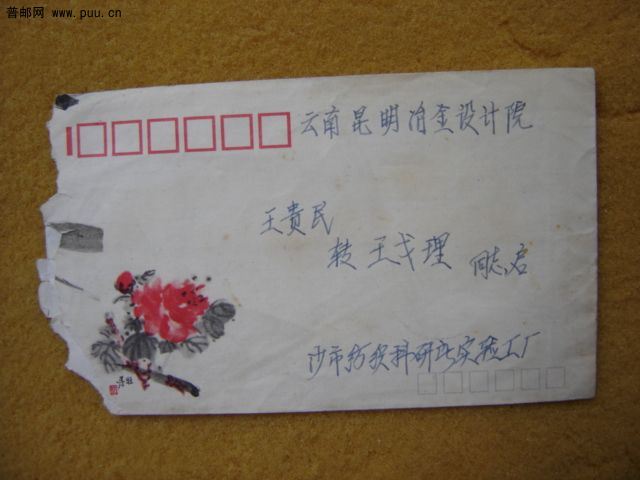 普邮网 www.puu.cn
云南昆明冶金设计院
王贵民
转 王戈理 同志启
沙市纺织科研所实验工厂